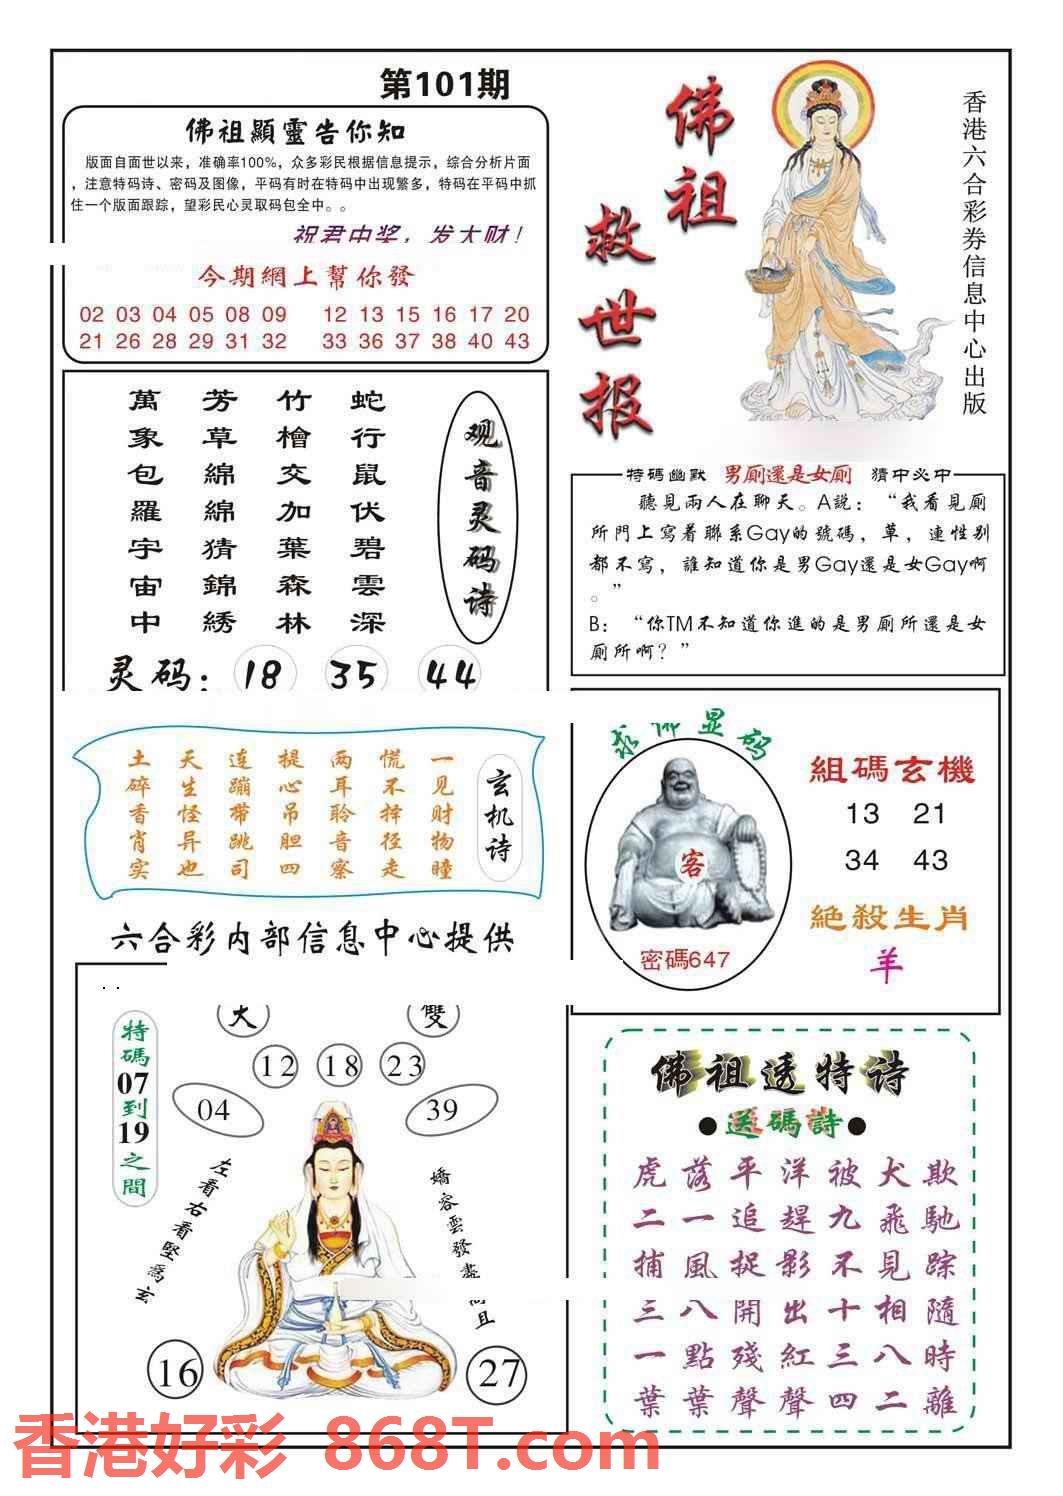 第101期
佛祖顯靈告你知
版面自面世以来，准确率100%，众多彩民根据信息提示，综合分析片面
，注意特码诗、密码及图像，平码有时在特码中出现繁多，特码在平码中抓
住一个版面跟踪，望彩民心灵取码包全中。。
祝君中奖，发大财！
今期網上幫你發
02 03 04 05 08 09 12 13 15 16 17 20
21 26 28 29 31 32 33 36 37 38 40 43
佛祖
救世报
香港六合彩券信息中心出版
观音灵码诗
蛇行鼠伏碧雲深
竹檜交加葉森林
芳草綿綿猜錦綉
萬象包羅宇宙中
灵码：18 35 44
特碼幽默 男厕還是女厕 猜中必中
聽見兩人在聊天。A説：“我看見厕
所門上寫着聯系Gay的號碼，草，連性别
都不寫，誰知道你是男Gay還是女Gay啊
。”
B：“你TM不知道你進的是男厕所還是女
厕所啊？”
玄机诗
一见财物瞳
慌不择径走
两耳聆音察
提心吊胆四
连蹦带跳司
天生怪异也
土碎香肖实
求佛显码
客
密碼647
組碼玄機
13 21
34 43
絶殺生肖
羊
六合彩内部信息中心提供
特碼07到19之間
大 雙
12 18 23
04 39
左看右看堅爲玄
嬌容雲發盡
且
16 27
佛祖透特诗
●送碼詩●
虎落平洋被犬欺
二一追趕九飛馳
捕風捉影不見踪
三八開出十相隨
一點殘紅三八時
葉葉聲聲四二離
香港好彩 868T.com